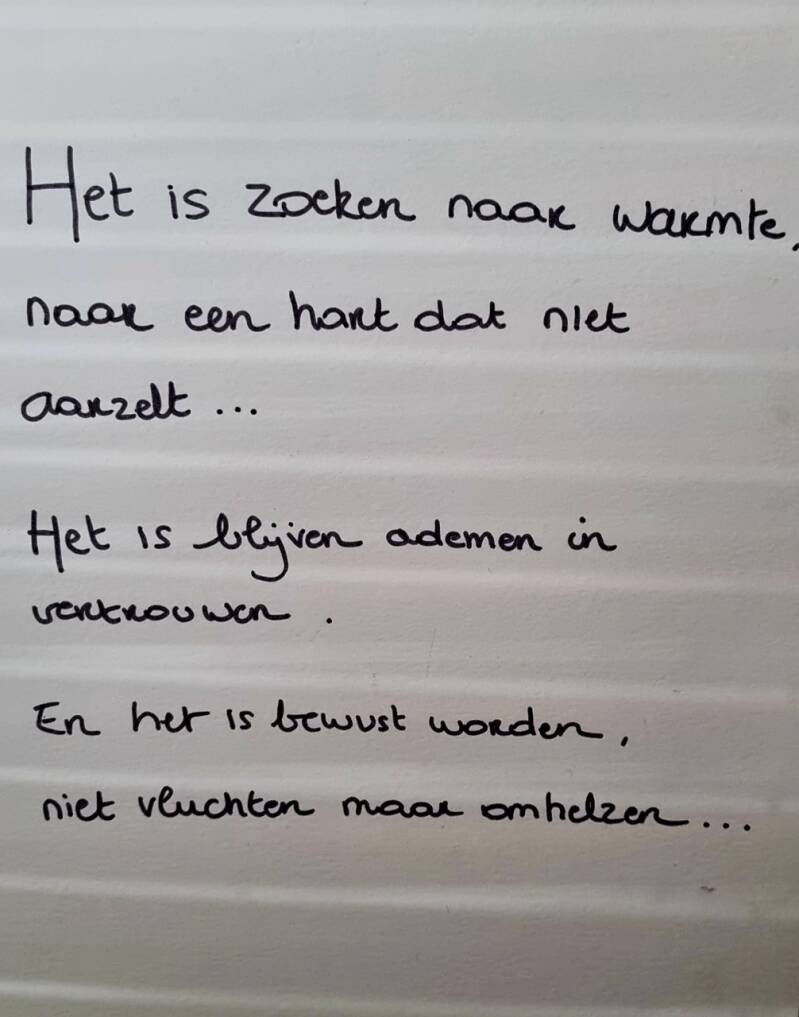 Het is zoeken naar warmte,
naar een hart dat niet
aarzelt ...
Het is blijven ademen in
vertrouwen.
En het is bewust worden,
niet vluchten maar omhelzen...